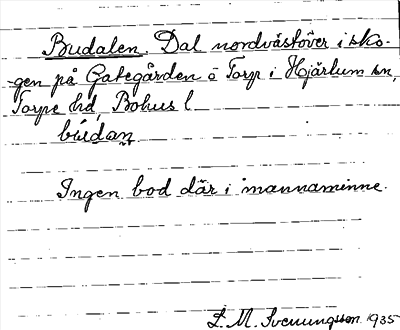 Budalen. Dal nordväståver i sko-
gen på Gategården å Torp i Hjärtum sn,
Torpe hd, Bohus l
búdaṇ
Ingen bod där i mannaminne.
L. M. Svenungsson. 1935